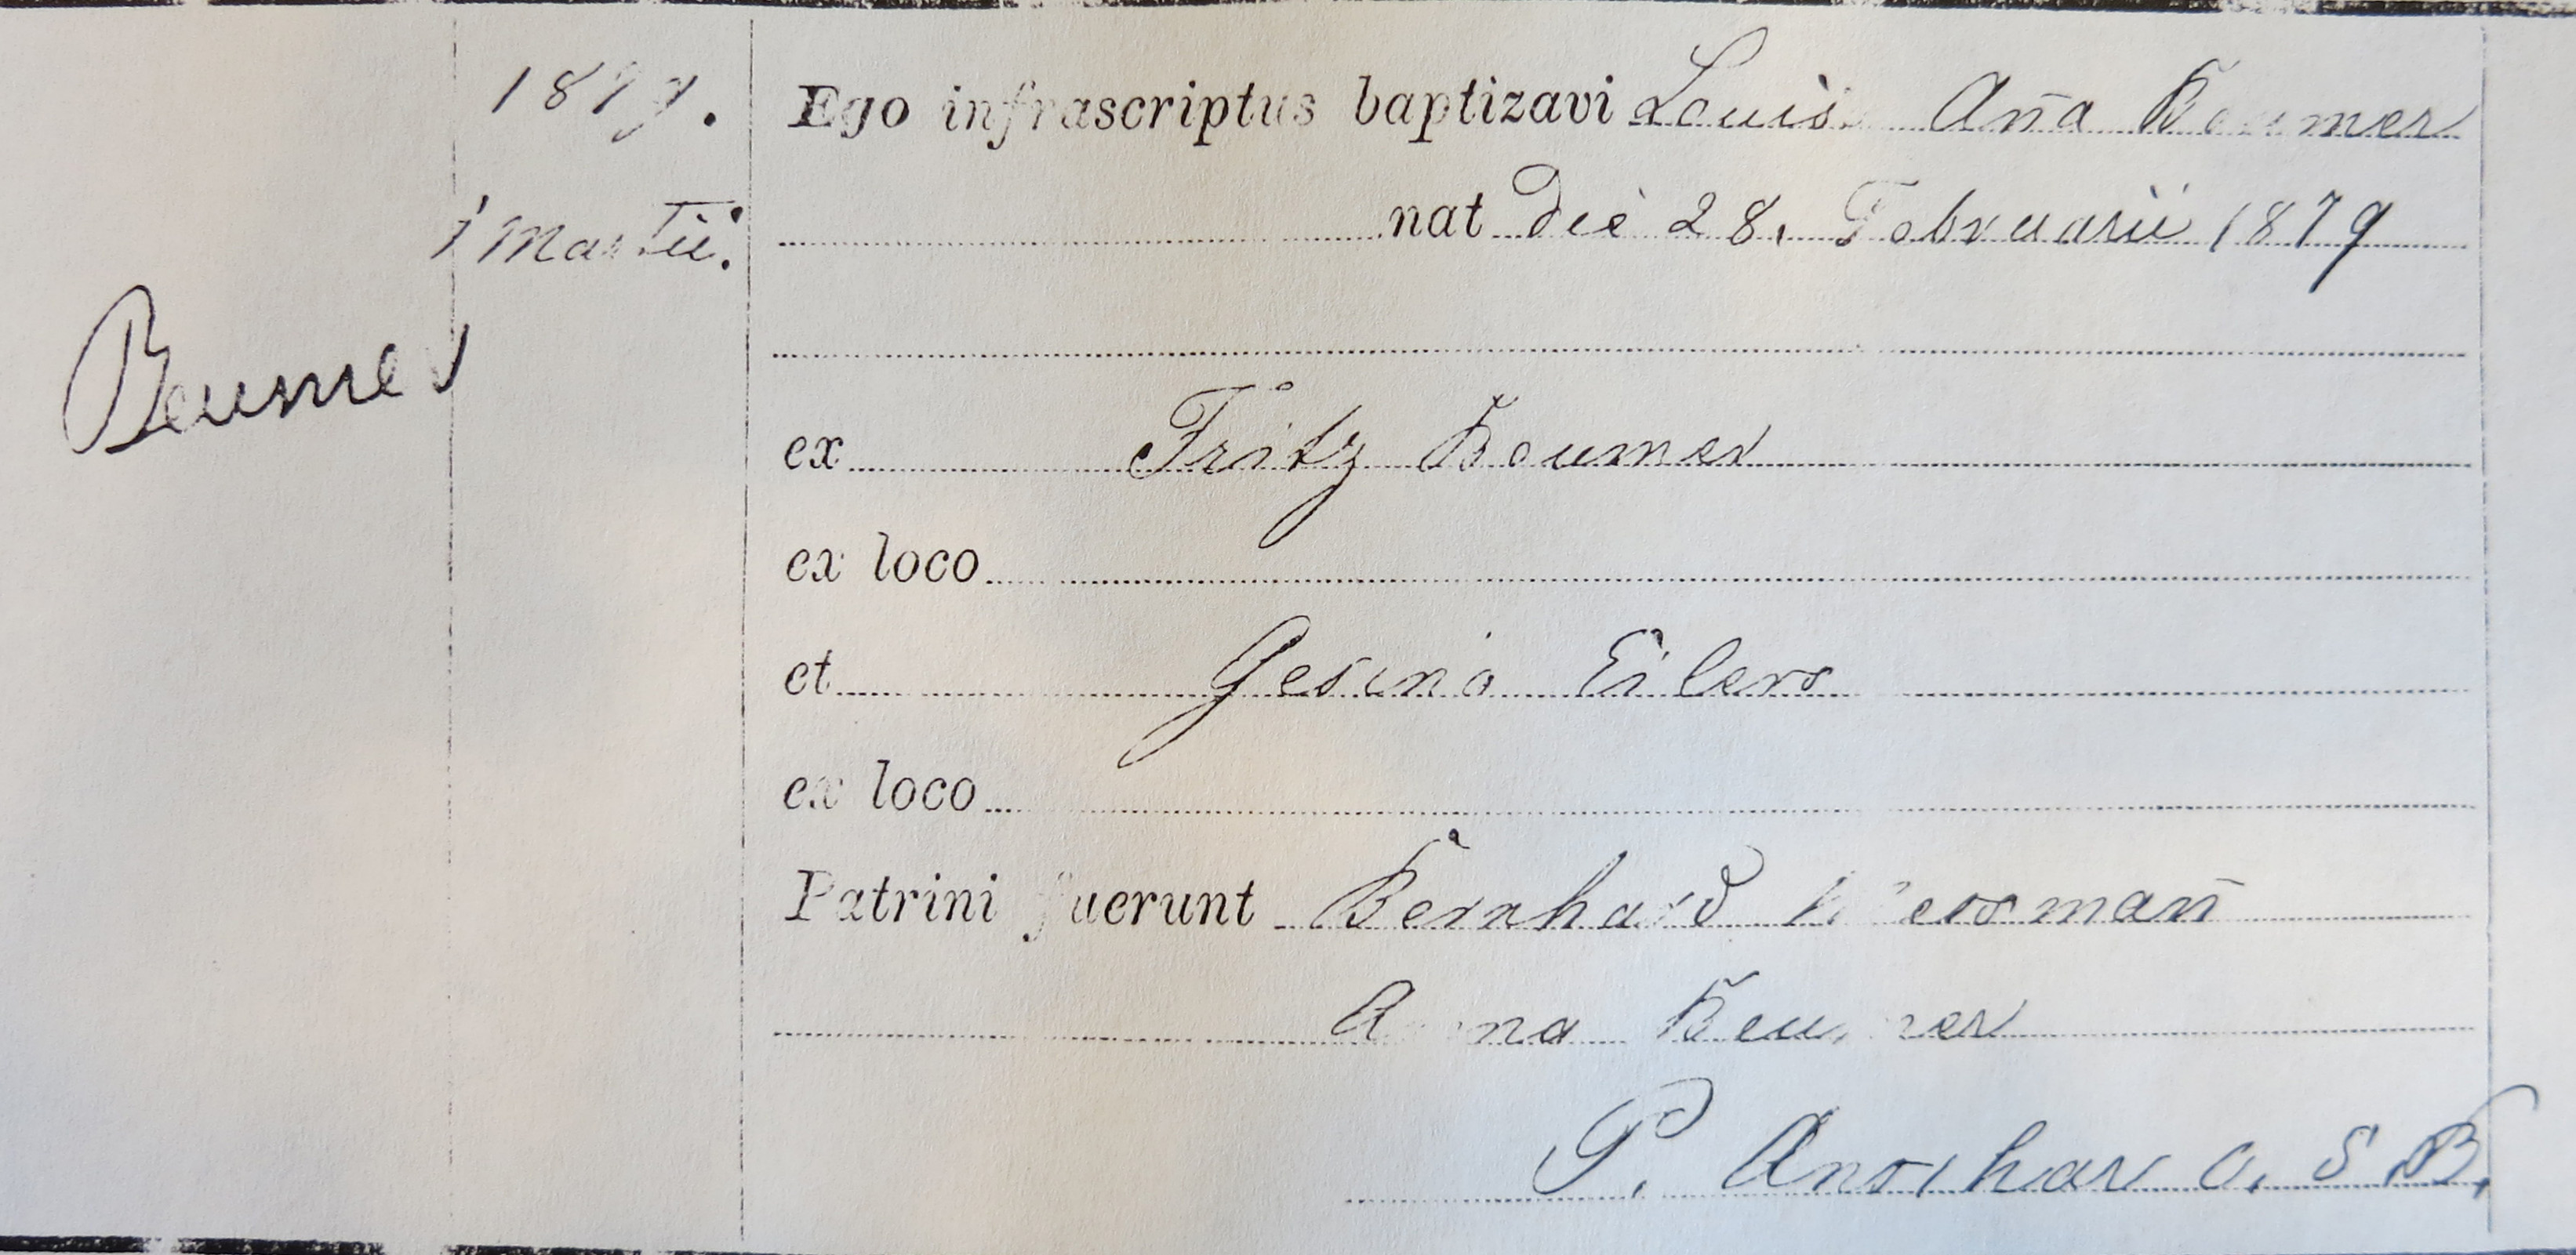 1879.
1 Martii.
Beumer
Ego infrascriptus baptizavi Louisa An̄a Beumer
nat die 28. Februarii 1879
ex Fritz Beumer
ex loco
et Gesina Eilers
ex loco
Patrini fuerunt Bernhard
Anna Beumer
P. Anschar O. S. B.